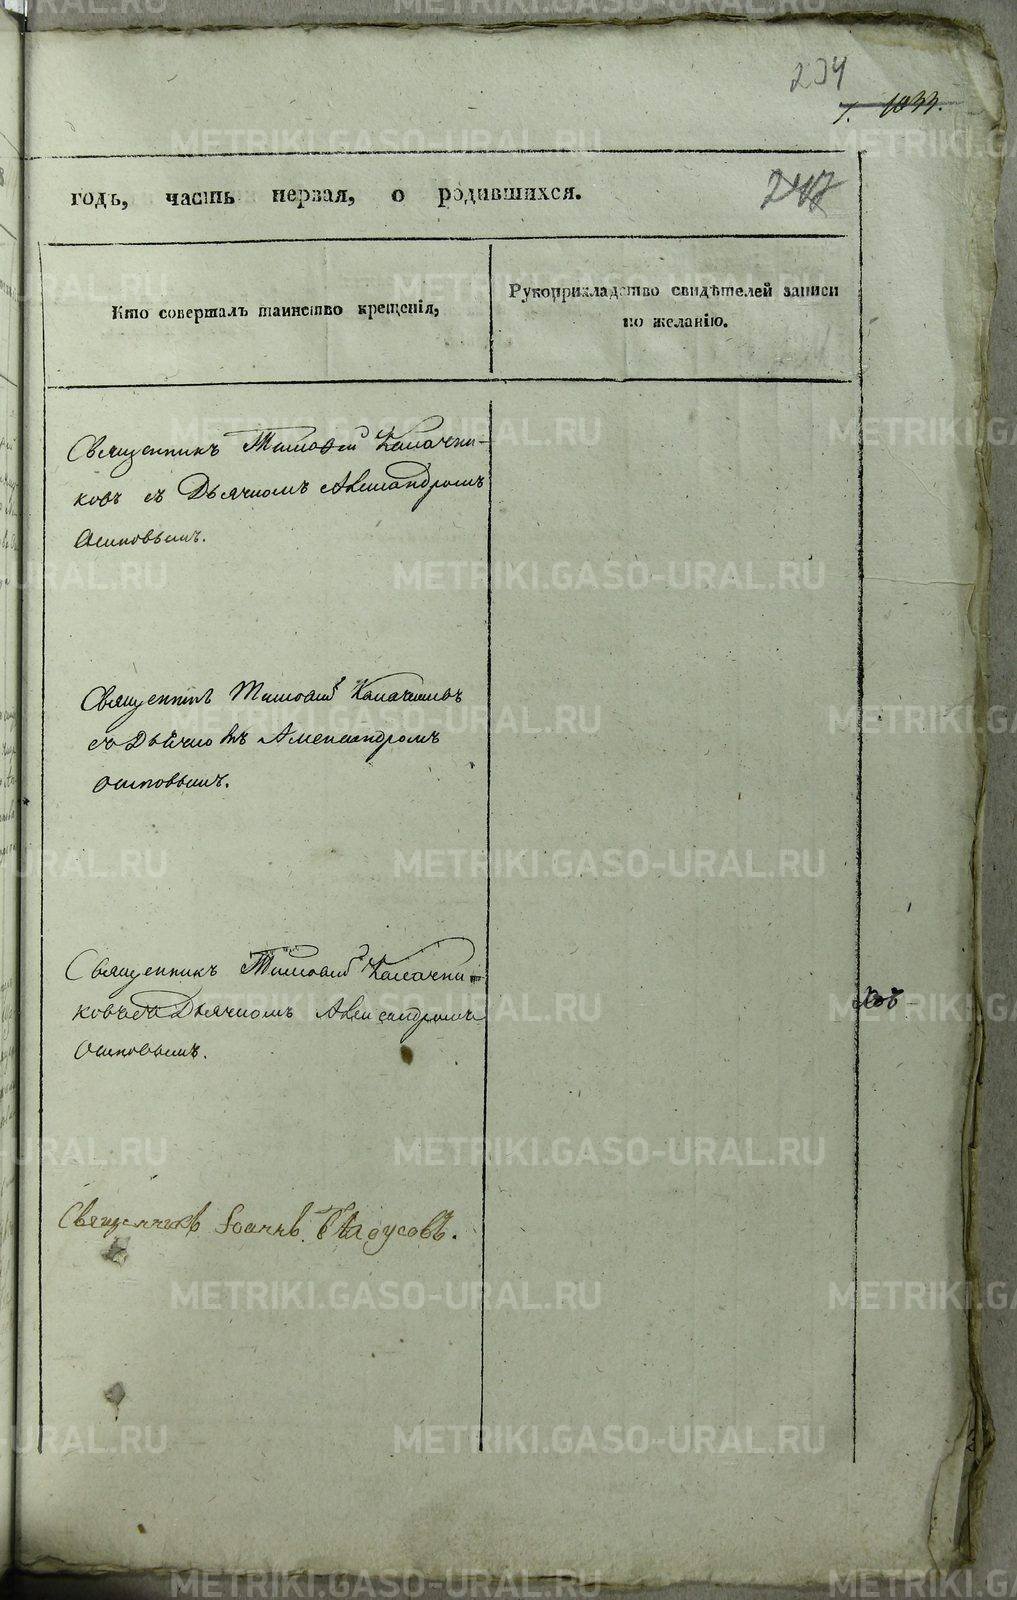 234
1033.
годъ, часть первая, о родившихся.
247
Кто совершалъ таинство крещенія,
Рукоприкладство свидѣтелей записи
по желанію.
Священникъ Тимофей Калачни-
ковъ съ Дьячкомъ Александромъ
Осиповымъ.
Священникъ Тимофей Калачниковъ
съ Дьячкомъ Александромъ
Осиповымъ.
Священникъ Тимофей Калачни-
ковъ съ Дьячкомъ Александромъ
Осиповымъ.
Священникъ Іоаннъ
METRIKI.GASO-URAL.RU